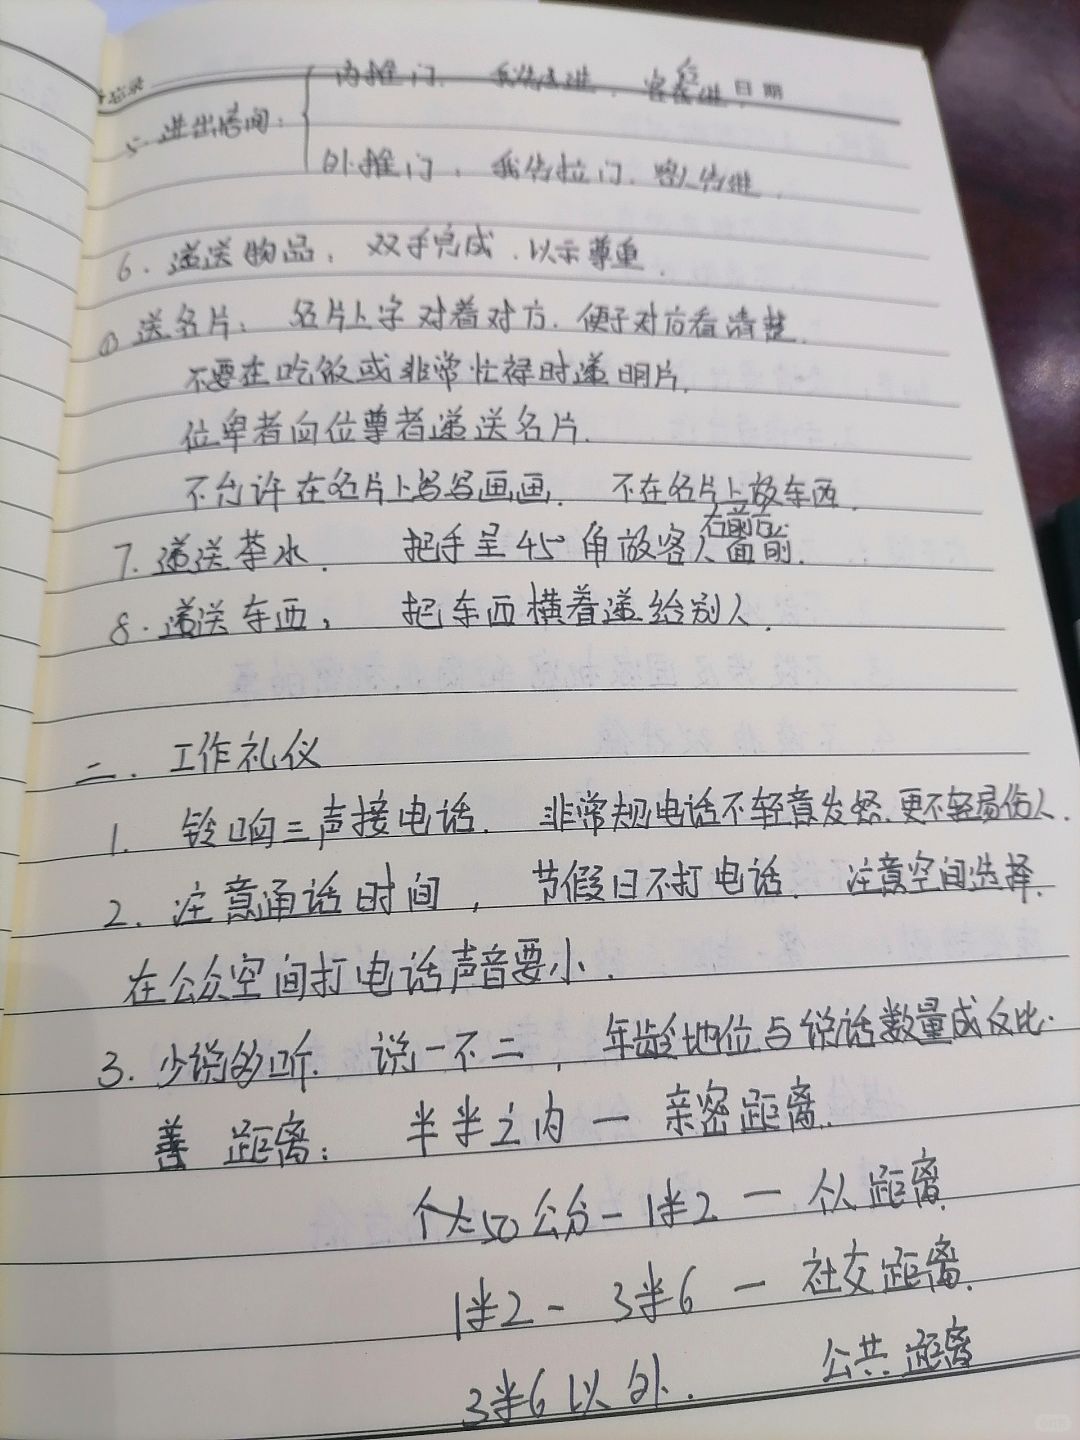 备忘录 日期
内推门. 我先进. 客后进.
5. 进出房间:
外推门, 我先拉门. 客人先进.
6. 递送物品, 双手完成. 以示尊重.
① 送名片: 名片上字对着对方. 便于对方看清楚.
不要在吃饭或非常忙碌时递明片.
位卑者向位尊者递送名片.
不允许在名片上写写画画. 不在名片上放东西.
右前方.
7. 递送茶水. 把手呈45°角放客人面前.
8. 递送东西, 把东西横着递给别人.
二. 工作礼仪
1. 铃响三声接电话. 非常规电话不轻意发怒. 更不轻易伤人.
2. 注意通话时间, 节假日不打电话. 注意空间选择.
在公众空间打电话声音要小.
3. 少说多听. 说一不二, 年龄地位与说话数量成反比.
善 距离: 半米之内 — 亲密距离.
个人50公分 - 1米2 — 个人距离.
1米2 - 3米6 — 社交距离.
3米6以外. 公共距离